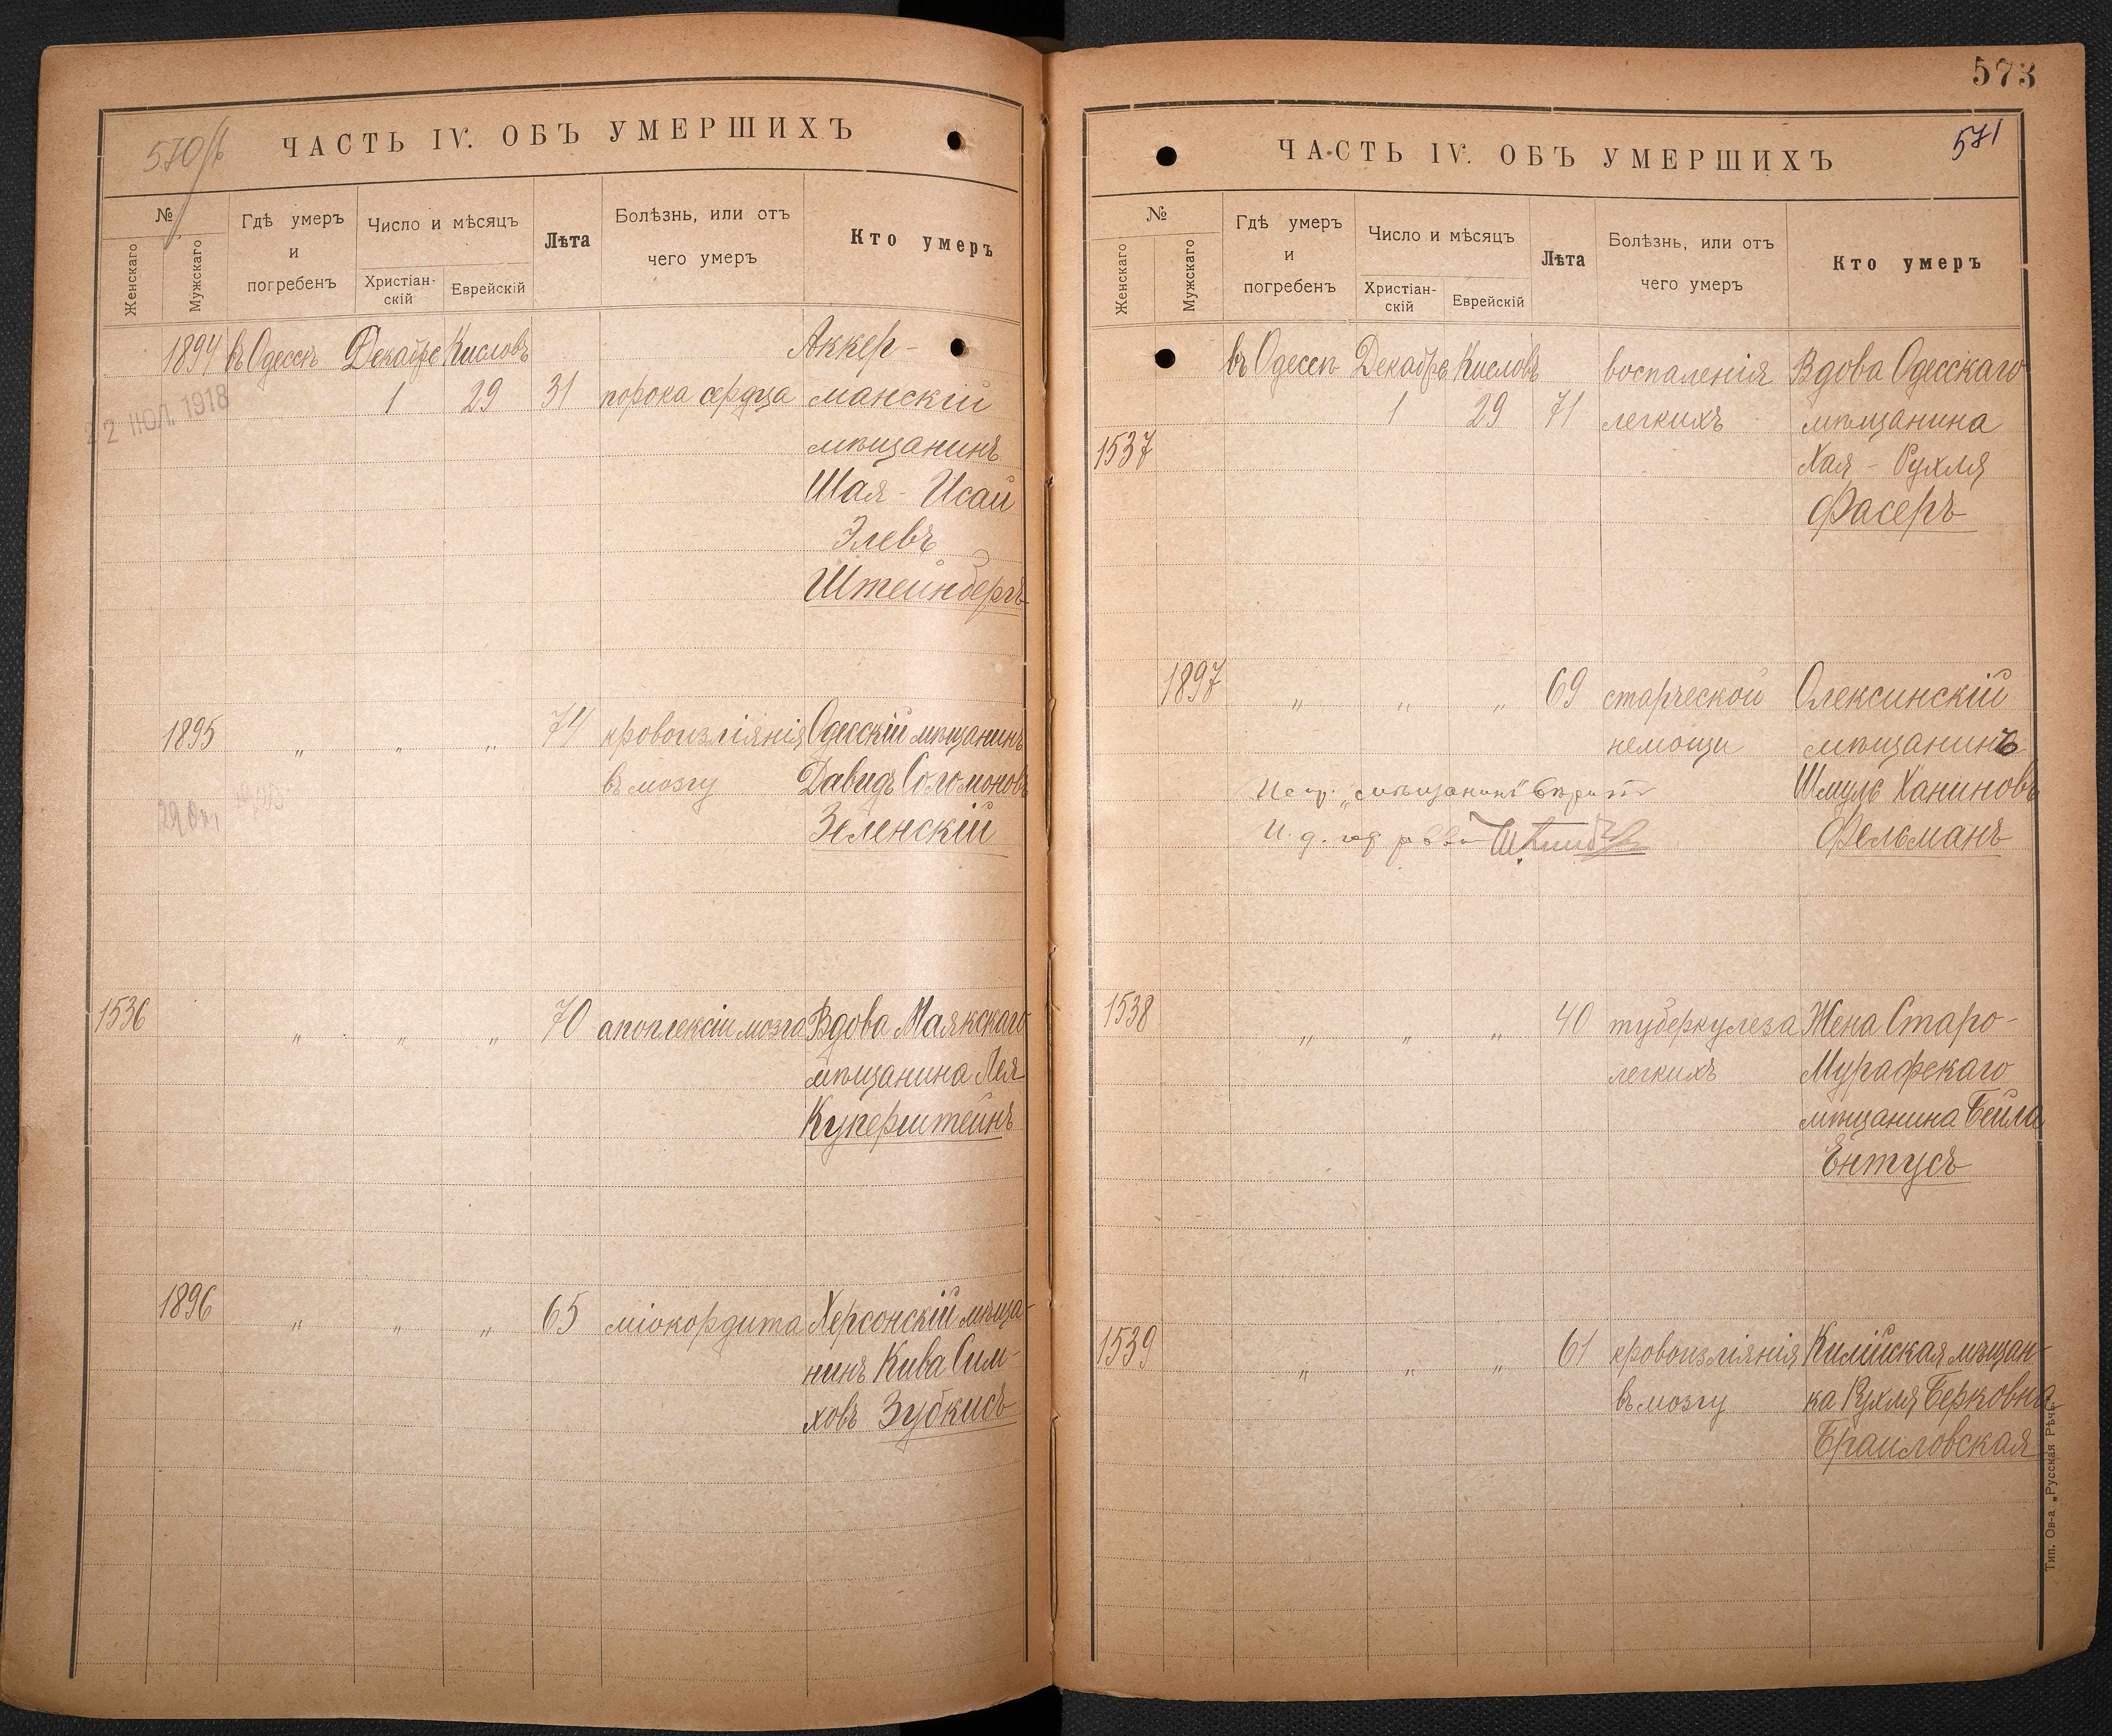 570/б
ЧАСТЬ IV. ОБЪ УМЕРШИХЪ
№
Женскаго
Мужскаго
Гдѣ умеръ
и
погребенъ
Число и мѣсяцъ
Христіан-
скій
Еврейскій
Лѣта
Болѣзнь, или отъ
чего умеръ
Кто умеръ
1894 въ Одессѣ Декабре Кисловъ Аккер-
1 29 31 порока сердца манскій
22 ІЮЛ. 1918
мѣщанинъ
Шая - Исаи
Элевъ
Штейнбергъ
1895 " " " 74 кровоизліянія Одесскій мѣщанинъ
въ мозгу Давидъ Соломоновъ
Зеленскій
1536 " " " 70 апоплексіи мозга Вдова Маякскаго
мѣщанина Лея
Куперштейнъ
1896 " " " 65 міокордита Херсонскій мѣща-
нинъ Кива Сим-
ховъ Зубкисъ
573
571
ЧАСТЬ IV. ОБЪ УМЕРШИХЪ
№
Женскаго
Мужскаго
Гдѣ умеръ
и
погребенъ
Число и мѣсяцъ
Христіан-
скій
Еврейскій
Лѣта
Болѣзнь, или отъ
чего умеръ
Кто умеръ
въ Одессѣ Декабре Кисловъ воспаленія Вдова Одесскаго
1 29 71 легкихъ мѣщанина
1537 Хая - Рухля
Фасеръ
1897 " " " 69 старческой Олексинскій
немощи мѣщанинъ
Испр. „мѣщанинъ" вѣрить Шмуль Ханиновъ
И. д. Фельманъ
1538 " " " 40 туберкулеза Жена Старо-
легкихъ Мурафскаго
мѣщанина Бейла
Ентусъ
1539 " " " 61 кровоизліянія Килійская мѣщан-
въ мозгу ка Рухля Берковна
Браиловская
Тип. Ов-а „Русская Рѣчь"